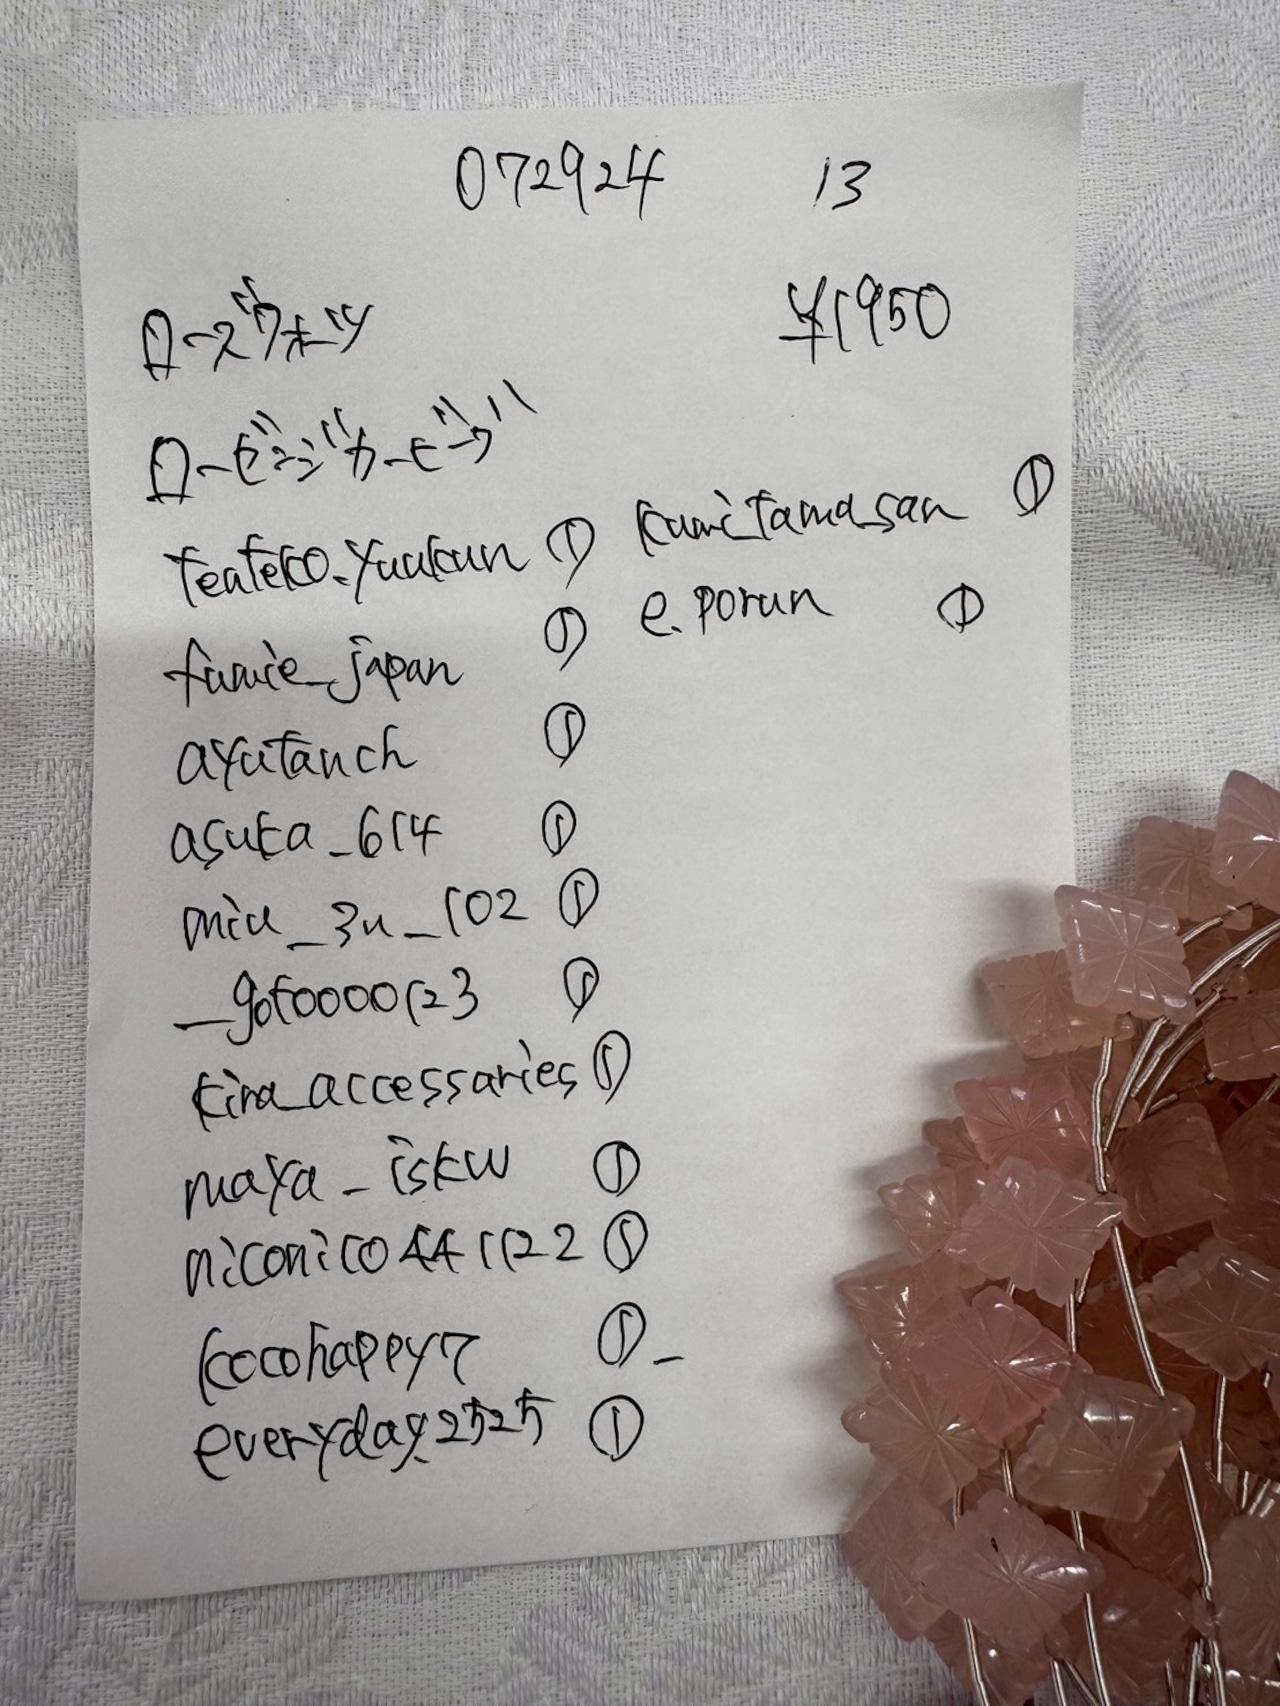 072924 13
ローズクォーツ ¥1950
teateko.yuukun ①
fumie_japan ①
ayutanch ①
asuka_614 ①
miu_3u_102 ①
_goto0000123 ①
kira_accessaries ①
maya_iskw ①
niconico441122 ①
kocohappy7 ①_
everyday.2525 ①
kumi_tama_san ①
e.porun ①